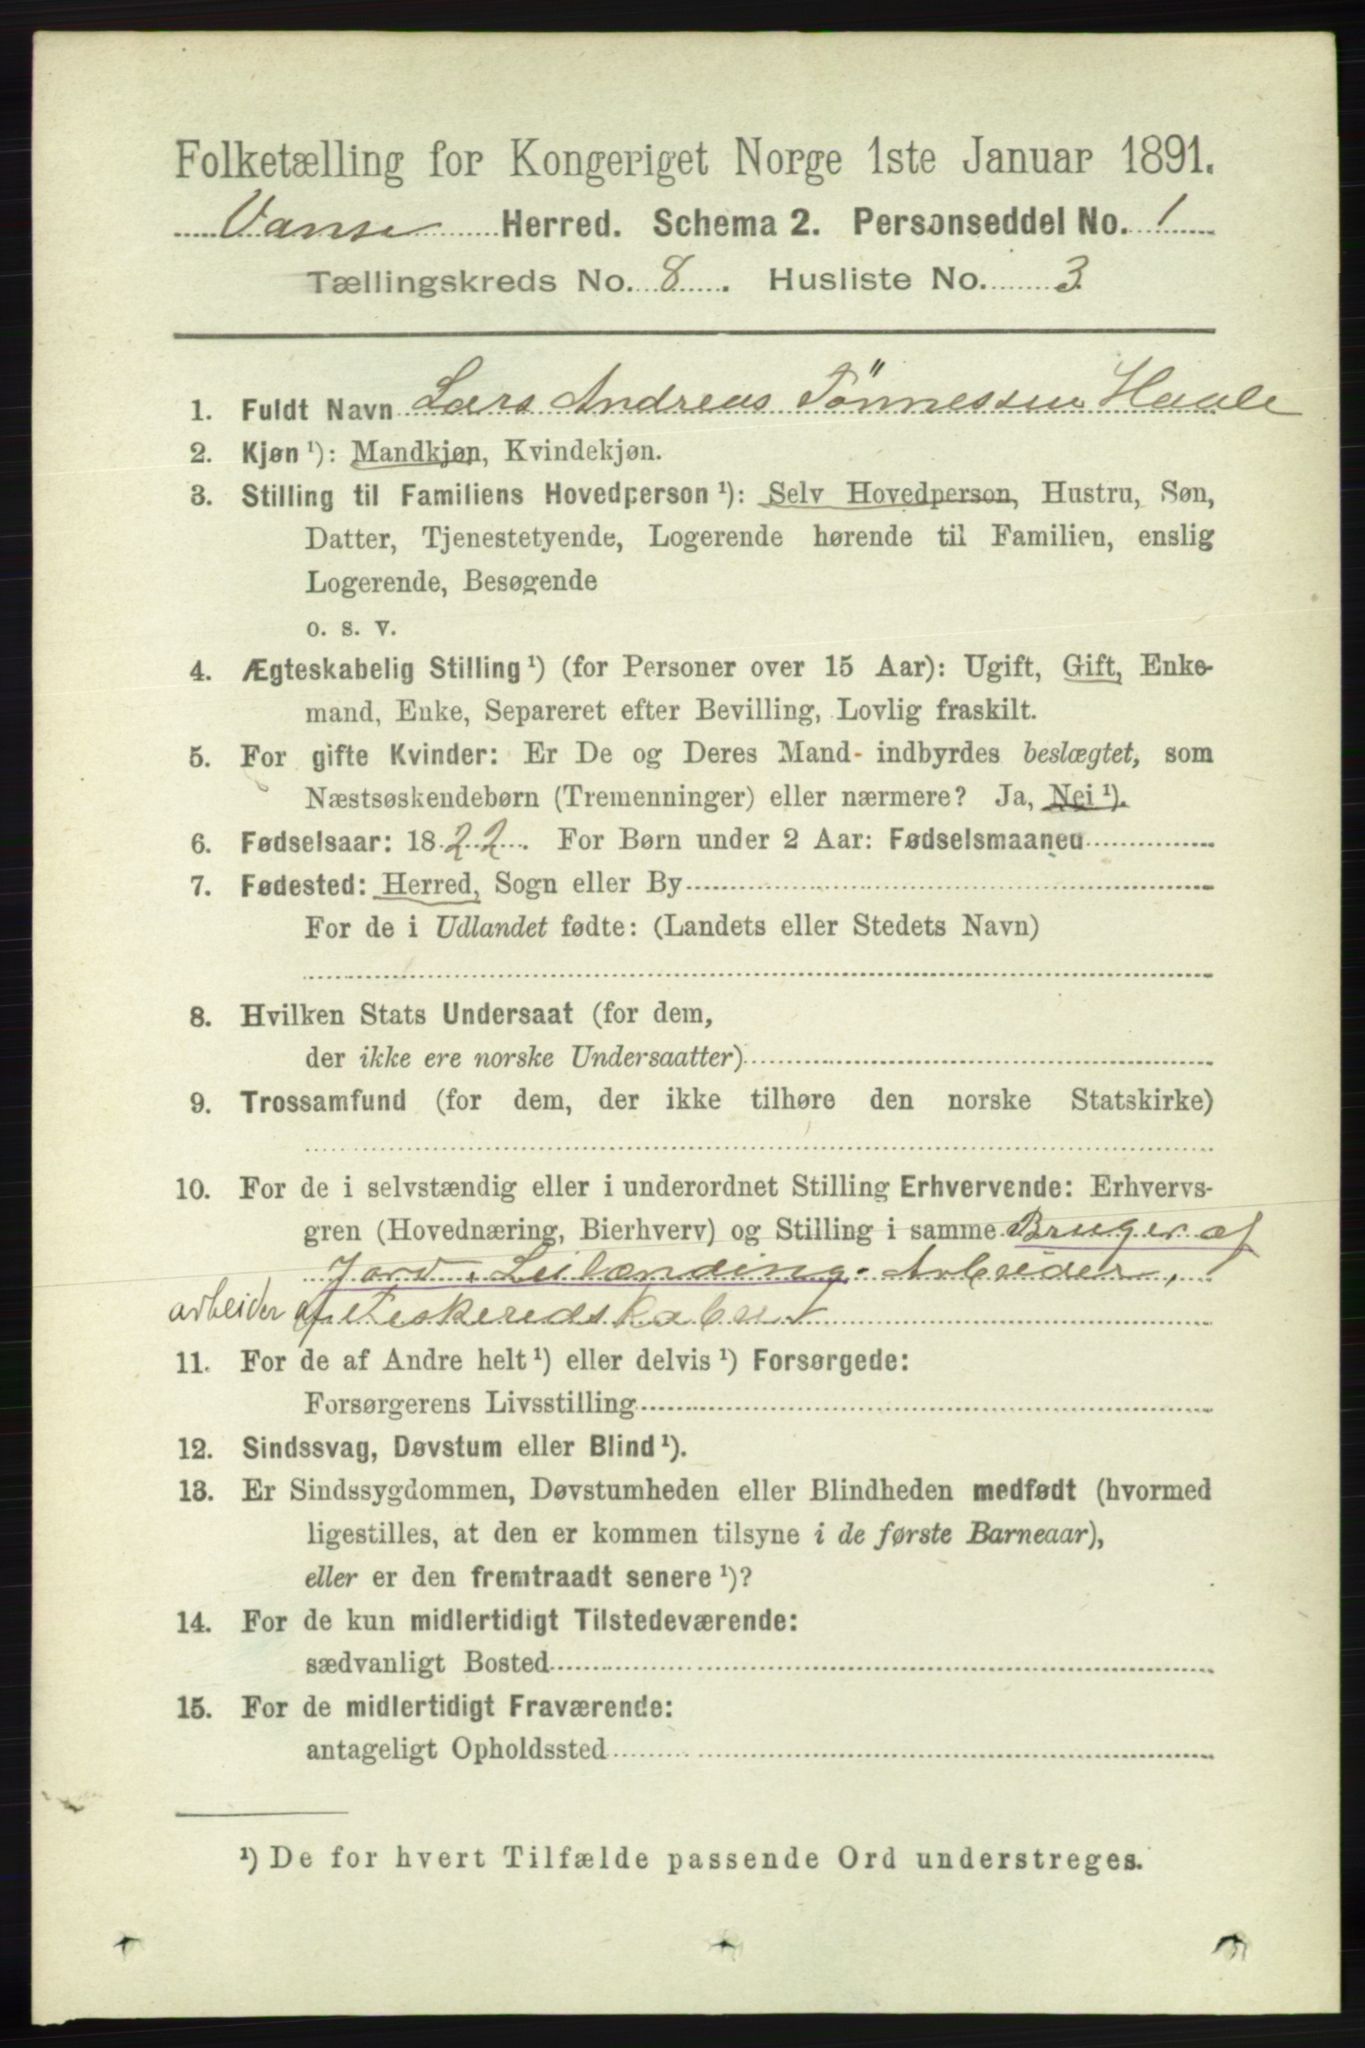 Folketælling for Kongeriget Norge 1ste Januar 1891.
Vanse Herred. Schema 2. Personseddel No. 1
Tællingskreds No. 8. Husliste No. 3
1. Fuldt Navn Lars Andreas Tönnessen Haale
2. Kjøn ¹): Mandkjøn, Kvindekjøn.
3. Stilling til Familiens Hovedperson ¹): Selv Hovedperson, Hustru, Søn,
Datter, Tjenestetyende, Logerende hørende til Familien, enslig
Logerende, Besøgende
o. s. v.
4. Ægteskabelig Stilling ¹) (for Personer over 15 Aar): Ugift, Gift, Enke-
mand, Enke, Separeret efter Bevilling, Lovlig fraskilt.
5. For gifte Kvinder: Er De og Deres Mand indbyrdes beslægtet, som
Næstsøskendebørn (Tremenninger) eller nærmere? Ja, Nei ¹).
6. Fødselsaar: 1822. For Børn under 2 Aar: Fødselsmaaned
7. Fødested: Herred, Sogn eller By
For de i Udlandet fødte: (Landets eller Stedets Navn)
8. Hvilken Stats Undersaat (for dem,
der ikke ere norske Undersaatter)
9. Trossamfund (for dem, der ikke tilhøre den norske Statskirke)
10. For de i selvstændig eller i underordnet Stilling Erhvervende: Erhvervs-
gren (Hovednæring, Bierhverv) og Stilling i samme Bruger af
Jord, Leilænding - Arbeider,
arbeider af Fiskeredskaber
11. For de af Andre helt ¹) eller delvis ¹) Forsørgede:
Forsørgerens Livsstilling
12. Sindssvag, Døvstum eller Blind ¹).
13. Er Sindssygdommen, Døvstumheden eller Blindheden medfødt (hvormed
ligestilles, at den er kommen tilsyne i de første Barneaar),
eller er den fremtraadt senere ¹)?
14. For de kun midlertidigt Tilstedeværende:
sædvanligt Bosted
15. For de midlertidigt Fraværende:
antageligt Opholdssted
¹) De for hvert Tilfælde passende Ord understreges.